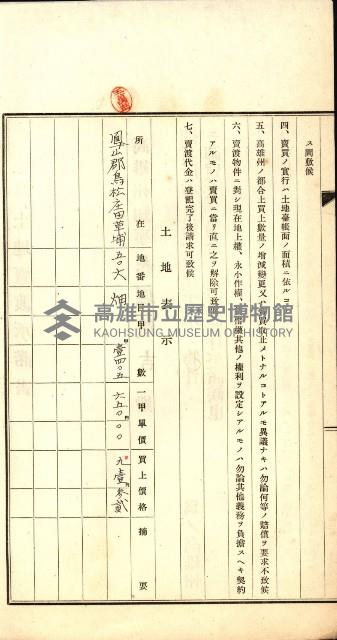 ス間敷候
四、賣買ノ實行ハ土地臺帳面ノ面積ニ依ル
五、高雄州ノ都合上買上數量ノ增減變更又ハ買取止メトナルコトアルモ異議ナキハ勿論何等ノ賠償ヲ要求不致候
六、賣渡物件ニ對シ現在地上權、永小作權、其他ノ權利ヲ設定シアルモノハ勿論其他義務ヲ負擔スヘキ契約
アルモノハ賣買ニ當リ直ニ之ヲ解除可致
七、賣渡代金ハ登記完了後請求可致候
土地表示
所在 地番 地目 甲數 一甲單價 買上價格 摘要
鳳山郡鳥松庄田草埔 五〇六 畑 壹四〇五 六五〇〇〇 九壹参貳
高雄市立歷史博物館
KAOHSIUNG MUSEUM OF HISTORY